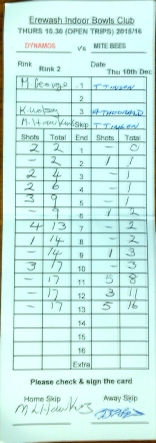 Erewash Indoor Bowls Club
THURS 10.30 (OPEN TRIPS) 2015/16
DYNAMOS v MITE BEES
Rink Rink 2 Date Thu 10th Dec
M George 1 T
2
3
M Hawkins Skip T
Shots Total END Shots Total
2 2 1 - 0
- 2 2 1 1
2 4 3 - 1
2 6 4 - 1
3 9 5 - 1
- 9 6 1 2
4 13 7 - 2
1 14 8 - 2
- 14 9 1 3
3 17 10 - 3
- 17 11 5 8
- 17 12 3 11
- 17 13 5 16
14
15
16
Extra
Please check & sign the card
Home Skip Away Skip
M L Hawkins